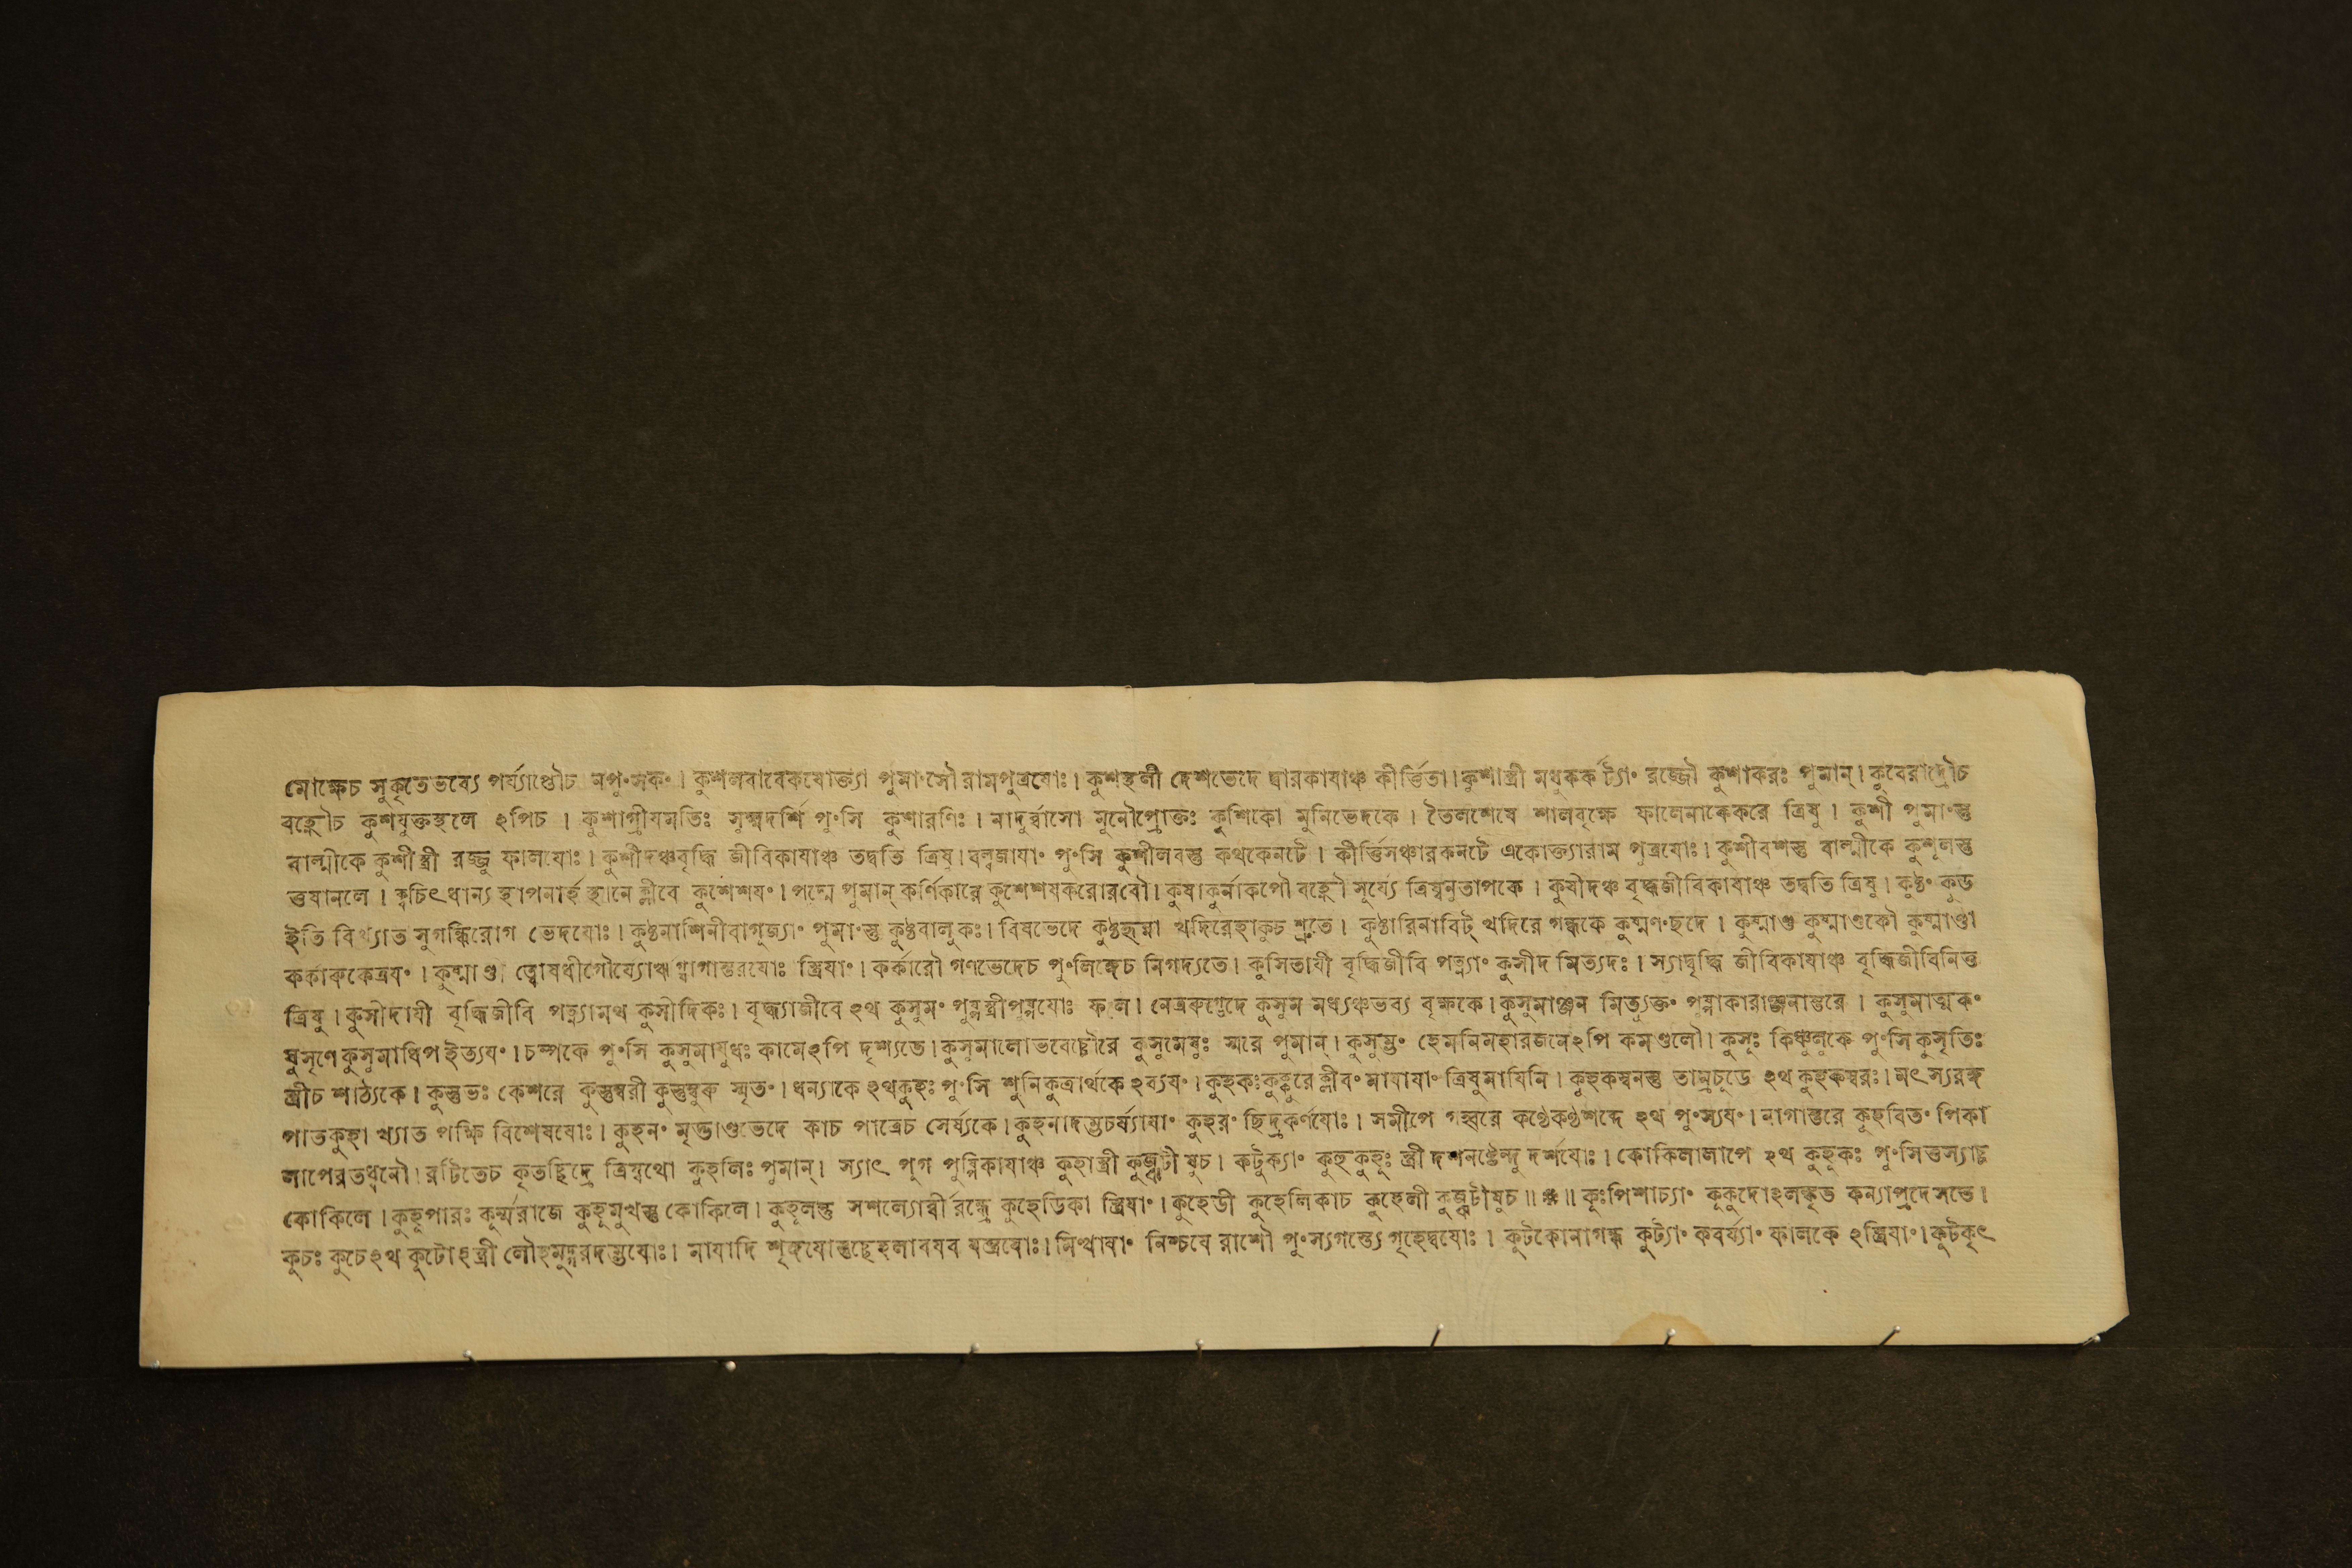 মোক্ষেচ সুকৃতেভব্যে পর্য্যাপ্তৌচ নপুংসকং। কুশলবাবেকযোক্ত্যা পুমাংসৌ রামপুত্রযোঃ। কুশস্থলী দেশভেদে দ্বারকাযাঞ্চ কীর্ত্তিতা। কুশাস্ত্রী মধুকর্কট্যাং রজ্জৌ কুশাকরঃ পুমান্। কুবেরাদ্রৌচ
বহ্নৌচ কুশযুক্তস্থলে ঽপিচ । কুশাগ্রীযমতিঃ সুক্ষ্মদর্শি পুংসি কুশারণিঃ। নাদুর্ব্বাসো মুনৌপ্রোক্তঃ কুশিকো মুনিভেদকে। তৈলশেষে শালবৃক্ষে ফালেনাকেকরে ত্রিষু। কুশী পুমাংস্তু
বাল্মীকে কুশীস্ত্রী রজ্জু ফালযোঃ। কুশীদঞ্চবৃদ্ধি জীবিকাযাঞ্চ তদ্বতি ত্রিষু। বল্বজাযাং পুংসি কুশীলবস্তু কথকেনটে। কীর্ত্তিসঞ্চারকনটে একোক্ত্যারাম পুত্রযোঃ। কুশীবশস্তু বাল্মীকে কুশূলস্তু
ত্তষানলে। ক্বচিৎ ধান্য স্থাপনার্হ স্থানে ক্লীবে কুশেশযং। পদ্মে পুমান্ কর্ণিকারে কুশেশযকরোরবৌ। কুষাকুর্নাকপৌ বহ্নৌ সূর্য্যে ত্রিষ্বনুতাপকে। কুষীদঞ্চ বৃদ্ধজীবিকাযাঞ্চ তদ্বতি ত্রিষু। কুষ্ঠং কুড
ইতি বিখ্যাত সুগন্ধিরোগ ভেদযোঃ। কুষ্ঠনাশিনীবাগুজ্যাং পুমাংস্তু কুষ্ঠবালুকঃ। বিষভেদে কুষ্ঠহৃন্না খদিরেহাকুচ শ্রুতে। কুষ্ঠারিনাবিট্ খদিরে গন্ধকে কুষ্মণংছদে। কুষ্মাণ্ড কুষ্মাণ্ডকৌ কুষ্মাণ্ডা
কর্কারুকেত্রযং। কুষ্মাণ্ড্যোষধীগৌর্য্যোঞ্চ গ্নাগান্তরযোঃ স্ত্রিযাং। কর্কারৌ গণভেদেচ পুংলিঙ্গেচ নিগদ্যতে। কুসিতাযী বৃদ্ধিজীবি পত্ন্যাং কুসীদ মিত্যদঃ। স্যাদ্বৃদ্ধি জীবিকাযাঞ্চ বৃদ্ধিজীবিনিত্ত
ত্রিষু। কুসীদাযী বৃদ্ধিজীবি পত্ন্যামথ কুসীদিকঃ। বৃদ্ধ্যাজীবে ঽথ কুসুমং পুষ্পস্ত্রীপুষ্পযোঃ ফলে। নেত্ররুগ্ভেদে কুসুম মধ্যঞ্চভব্য বৃক্ষকে। কুসুমাঞ্জন মিত্যুক্তং পুষ্পাকারাঞ্জনান্তরে। কুসুমাত্মকং
ঘুসৃণে কুসুমাধিপ ইত্যযং। চম্পকে পুংসি কুসুমাযুধঃ কামেঽপি দৃশ্যতে। কুসুমালোভবেচ্চৌরে কুসুমেষুঃ স্মরে পুমান্। কুসুম্ভং হেমনিমহারজনেঽপি কমণ্ডলৌ। কুসূঃ কিঞ্চুলুকে পুংসি কুসৃতিঃ
স্ত্রীচ শাঠ্যকে। কুস্তুভঃ কেশরে কুস্তুম্বরী কুস্তুম্বুরু স্মৃতং। ধন্যাকে ঽথকুহঃ পুংসি শুনিকুত্রার্থকে ঽব্যযং। কুহকঃকুক্কুরে ক্লীবং মাযাযাং ত্রিষুমাযিনি। কুহকস্বনস্তু তাম্রচূডে ঽথ কুহকস্বরঃ। মৎস্যরঙ্গ
পাতকুহা খ্যাত পক্ষি বিশেষযোঃ। কুহনং মৃদ্ভাণ্ডভেদে কাচ পাত্রেচ সের্ষ্যকে। কুহনাদম্ভচর্য্যাযাং কুহরং ছিদ্রকর্ণযোঃ। সমীপে গহ্বরে কণ্ঠেকণ্ঠশব্দে ঽথ পুংস্যযং। নাগান্তরে কুহবিতং পিকা
লাপেরতধ্বনৌ। রটিতেচ কৃতছিদ্রে ত্রিষ্বথো কুহলিঃ পুমান্। স্যাৎ পুগ পুষ্পিকাযাঞ্চ কুহাস্ত্রী কুজ্ঝটী ষুচ। কটুক্যাং কুহুকুহূঃ স্ত্রী দশনষ্টেন্দু দর্শযোঃ। কোকিলালাপে ঽথ কুহূকঃ পুংসিত্তস্যাচ্চ
কোকিলে। কুহূপারঃ কূর্ম্মরাজে কুহূমুখস্তু কোকিলে। কুহূলন্তু সশল্যোর্ব্বীরন্ধ্রে কুহেডিকা স্ত্রিযাং। কুহেডী কুহেলিকাচ কুহেলী কুজ্ঝটীষুচ॥ ॥ কূঃপিশাচ্যাং কূকুদোঽলঙ্কৃত কন্যাপ্রদেসতে।
কুচঃ কুচেঽথ কুটোঽস্ত্রী লৌহমুদ্গরদম্ভযোঃ। মাযাদি শৃঙ্গযোস্তুচ্ছেহলাবযব যন্ত্রযোঃ। মিথ্যাযাং নিশ্চযে রাশৌ পুংস্যগস্ত্যে গৃহেদ্বযোঃ। কুটকোনাগন্ধ কুট্যাং কবর্য্যাং ফালকে ঽস্ত্রিযাং। কুটকৃৎ